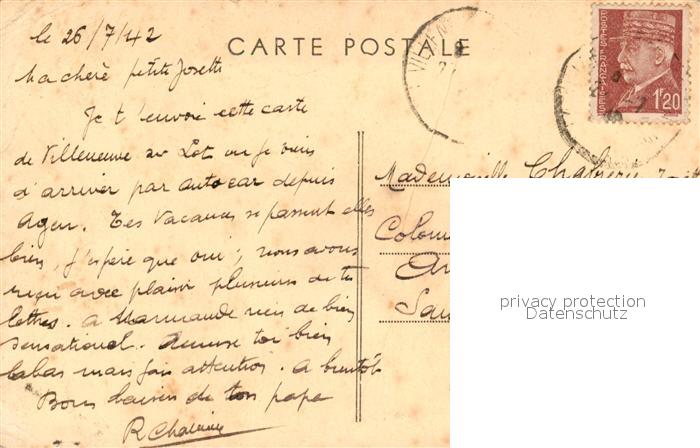 le 26/7/42
CARTE POSTALE
Ma chère petite Josette
Je t'envoie cette carte
de Villeneuve sur Lot ou je viens
d'arriver par autocar depuis
Agen. Tes Vacances se passent elles
bien, j'espère que oui; nous avons
reçu avec plaisir plusieurs de tes
lettres. a Marmande rien de bien
sensationel. Amuse toi bien
labas mais fais attention. a bientôt
Bons baisers de ton papa
R
Mademoiselle
Colon
Ar
Sau
POSTES FRANÇAISES
1F20
VILLEN
privacy protection
Datenschutz